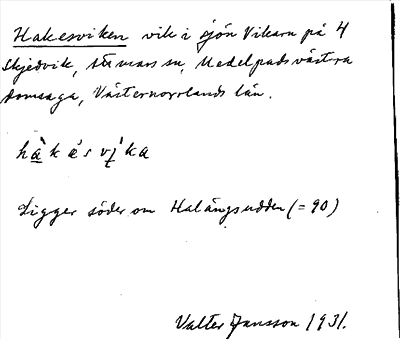 Hakesviken vik i sjön Vikarn på 4
Skjedvik, Attmars sn, Medelpads västra
domsaga, Västernorrlands län.
hàkés vi̯ka
Ligger söder om Halängsudden (= 90)
Valter Jansson 1931.